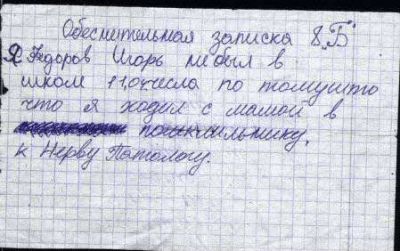 Обеснительная записка 8„Б"
Я Федоров Игорь не был в
школе 11.04 числа по томушто
что я ходил с мамой в
поликсильнику,
к Нерву Патологу.